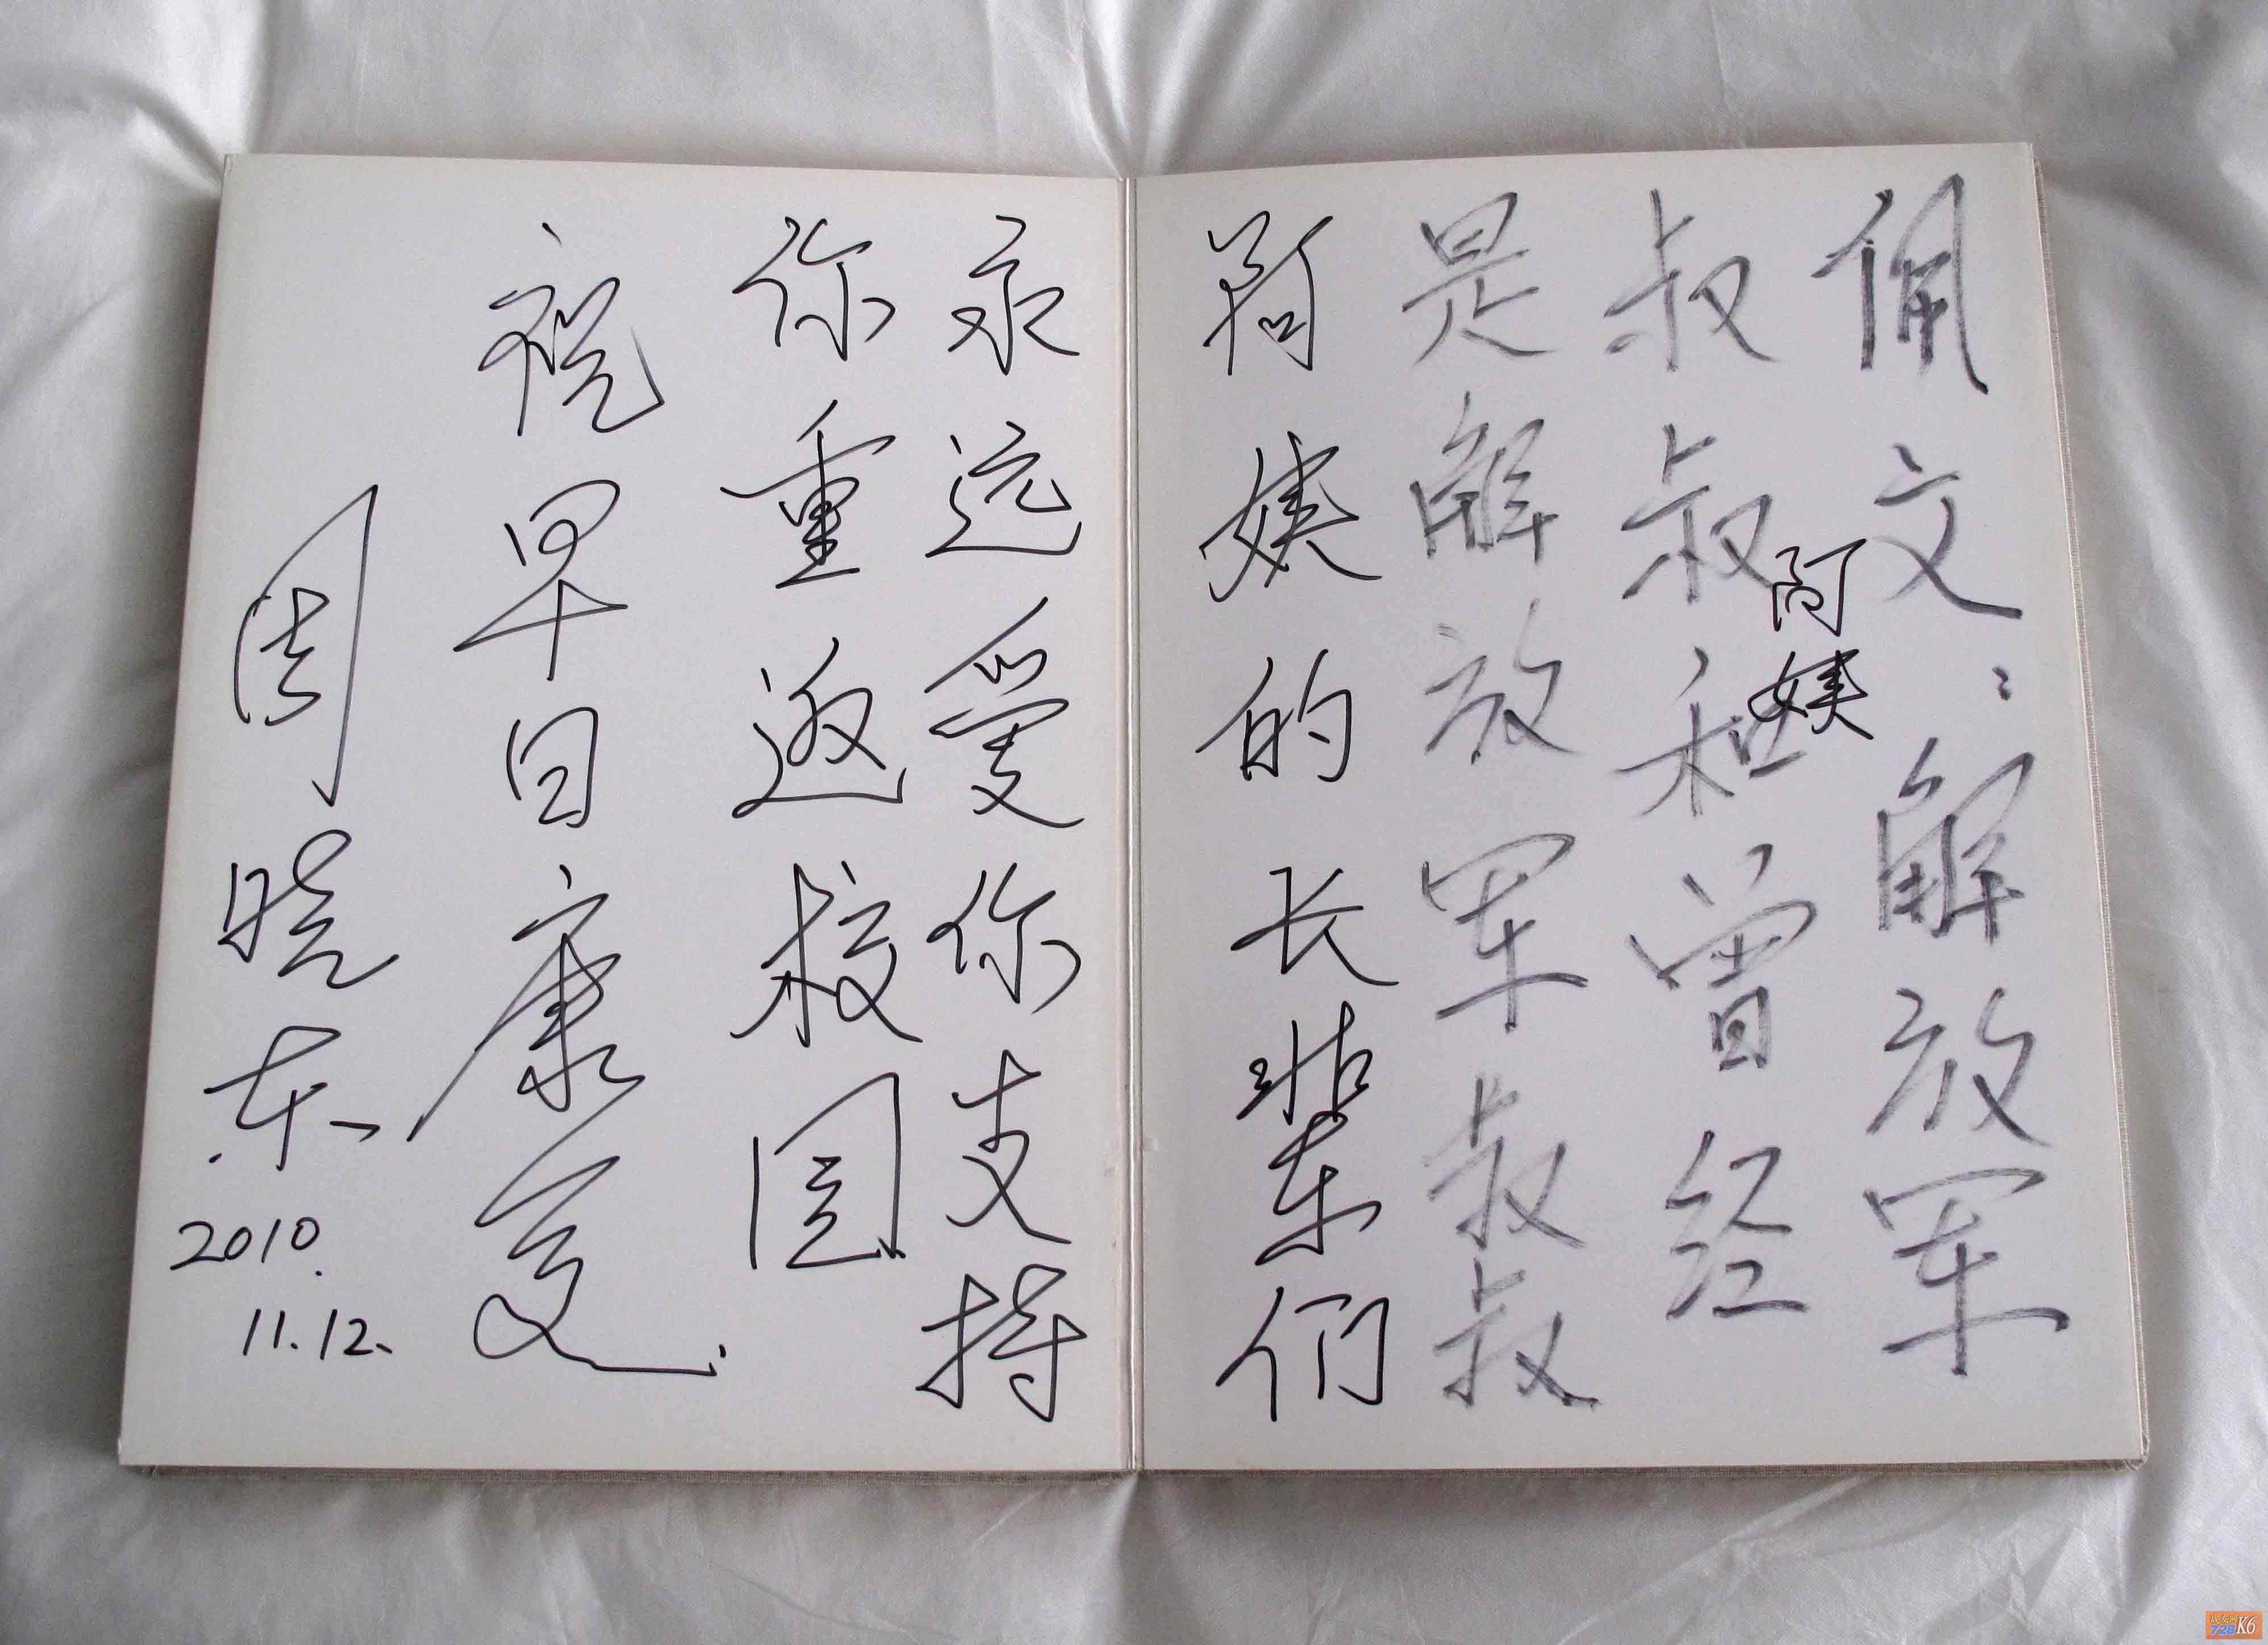 佣文：解放军
叔叔阿姨和曾经
是解放军叔叔
阿姨的长辈们
永远爱你支持
你重返校园
祝早日康复
周晓东
2010.
11.12.
728K6